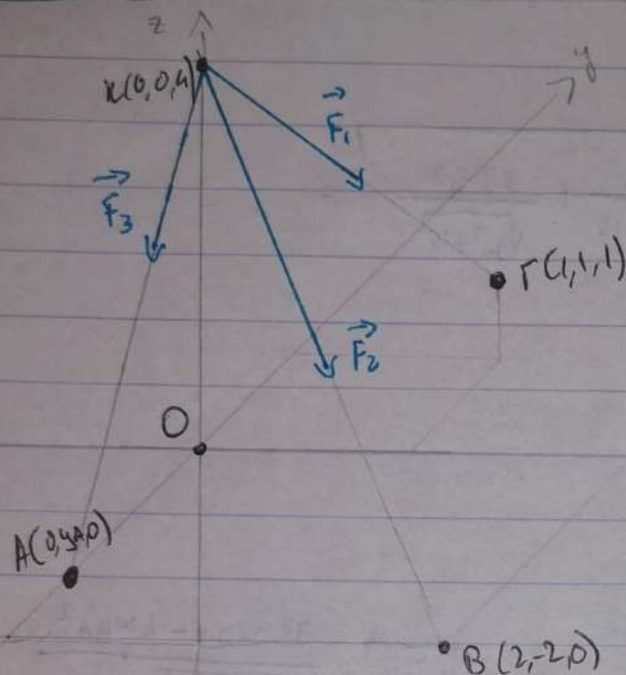 z
y
κ(0,0,4)
F₁
F₃
Γ(1,1,1)
F₂
O
A(0,yA,0)
B(2,-2,0)